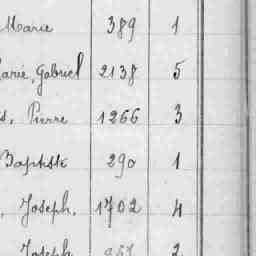 Marie 389 1
Marie, Gabriel 2138 5
Pierre 1266 3
Baptiste 290 1
, Joseph, 1702 4
Joseph 967 2